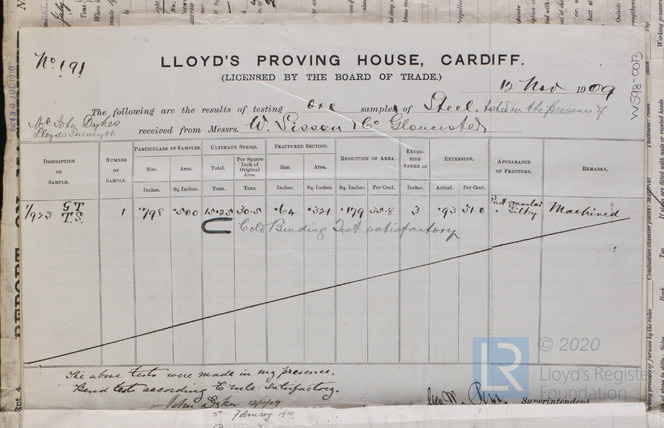 No. 191
LLOYD'S PROVING HOUSE, CARDIFF.
(LICENSED BY THE BOARD OF TRADE.)
12 Nov 1909
The following are the results of testing one samples of Steel tested in the presence of
Mr. John Dykes
Lloyds Surveyor
received from Messrs. W. Sisson & Co Gloucester
DESCRIPTION OF SAMPLE. NUMBER OF SAMPLE. PARTICULARS OF SAMPLES. ULTIMATE STRESS. FRACTURED SECTION. REDUCTION OF AREA. EXTENSION TAKEN IN EXTENSION. APPEARANCE OF FRACTURE. REMARKS.
Size. Area. Total. Per Square Inch of Original Area. Size. Area.
Inches. Sq. Inches. Tons. Tons. Inches. Sq. Inches. Sq. Inches. Per Cent. Inches. Actual. Per Cent.
1/923 G.T. T.S. 1 .798 .500 15.25 30.5 .64 .321 .179 35.8 3 .93 31.0 Part granular Silky Machined
Cold Bending Test satisfactory
The above tests were made in my presence.
Bend test according to rule satisfactory.
John Dykes 12/11/09
Superintendent
5th February 1910
W598-0013
LR
© 2020
Lloyd's Register
Foundation